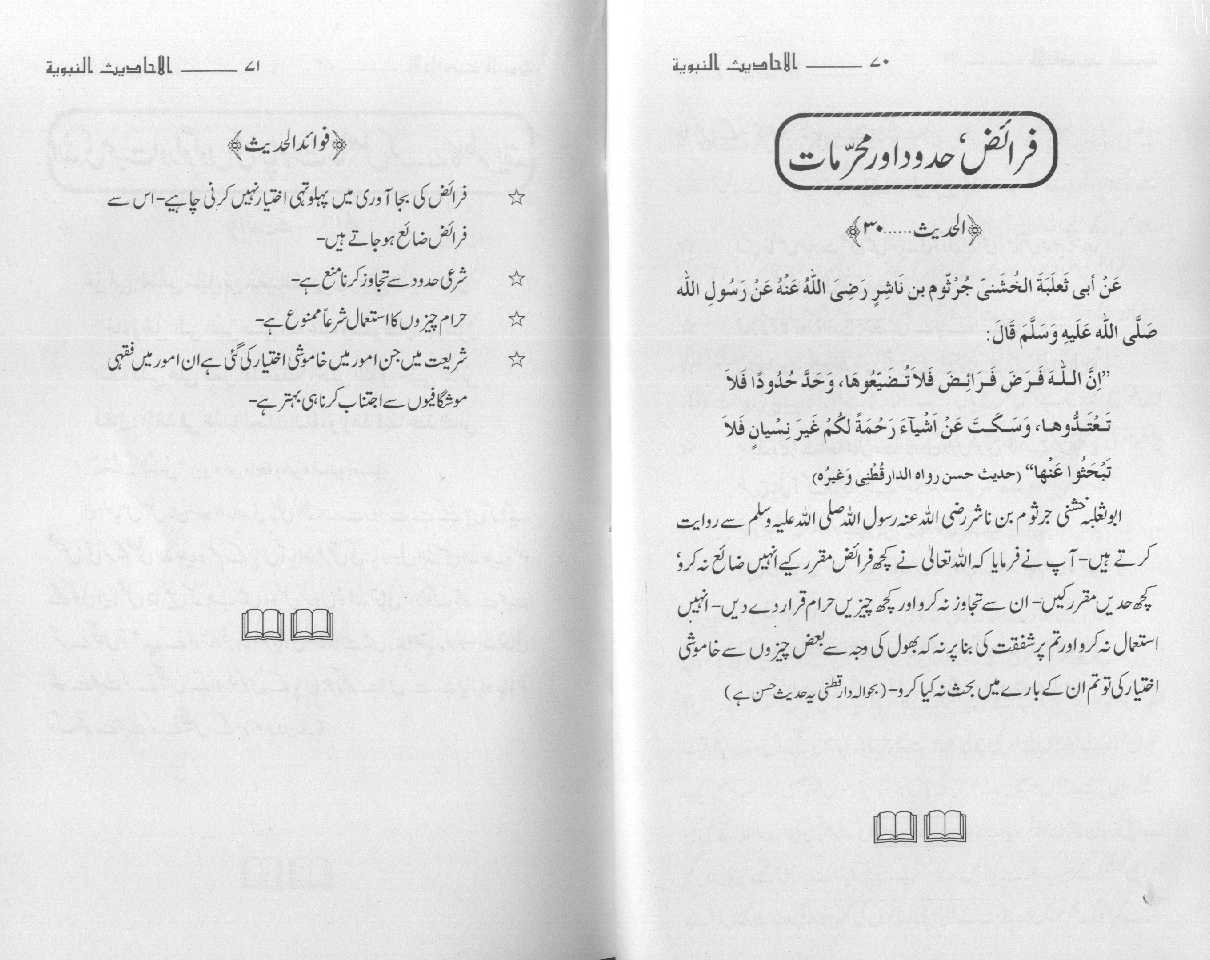 ۷۰ ــــــــ الاحاديث النبوية
فرائض، حدود اور محرّمات
﴿الحدیث......۳۰﴾
عَنْ أبی ثَعلَبَةَ الخُشَنیّ جُرْثُوم بن نَاشِرٍ رَضِیَ اللّٰهُ عَنْهُ عَنْ رَسُولِ اللّٰه
صَلَّی اللّٰه عَلَیهِ وَسَلَّمَ قَالَ:
”اِنَّ اللّٰهَ فَرَضَ فَرَائِضَ فَلاَ تُضَیِّعُوهَا، وَحَدَّ حُدُودًا فَلاَ
تَعْتَدُّوهَا، وَسَکَتَ عَنْ اَشْیَآءَ رَحْمَةً لَکُمْ غَیرَ نِسْیانٍ فَلاَ
تَبْحَثُوا عَنْها“ (حدیث حسن رواه الدار قُطْنِی وَغَیرُه)
ابو ثعلبہ خشنی جرثوم بن ناشر رضی اللہ عنہ رسول اللہ صلی اللہ علیہ وسلم سے روایت
کرتے ہیں- آپ نے فرمایا کہ اللہ تعالیٰ نے کچھ فرائض مقرر کیے انہیں ضائع نہ کرو،
کچھ حدیں مقرر کیں- ان سے تجاوز نہ کرو اور کچھ چیزیں حرام قرار دے دیں- انہیں
استعمال نہ کرو اور تم پر شفقت کی بنا پر نہ کہ بھول کی وجہ سے بعض چیزوں سے خاموشی
اختیار کی تو تم ان کے بارے میں بحث نہ کیا کرو- (بحوالہ دار قطنی یہ حدیث حسن ہے)
۷۱ ــــــــ الاحاديث النبوية
﴿فوائد الحدیث﴾
☆ فرائض کی بجا آوری میں پہلو تہی اختیار نہیں کرنی چاہیے- اس سے
فرائض ضائع ہو جاتے ہیں-
☆ شرعی حدود سے تجاوز کرنا منع ہے-
☆ حرام چیزوں کا استعمال شرعاً ممنوع ہے-
☆ شریعت میں جن امور میں خاموشی اختیار کی گئی ہے ان امور میں فقہی
موشگافیوں سے اجتناب کرنا ہی بہتر ہے-